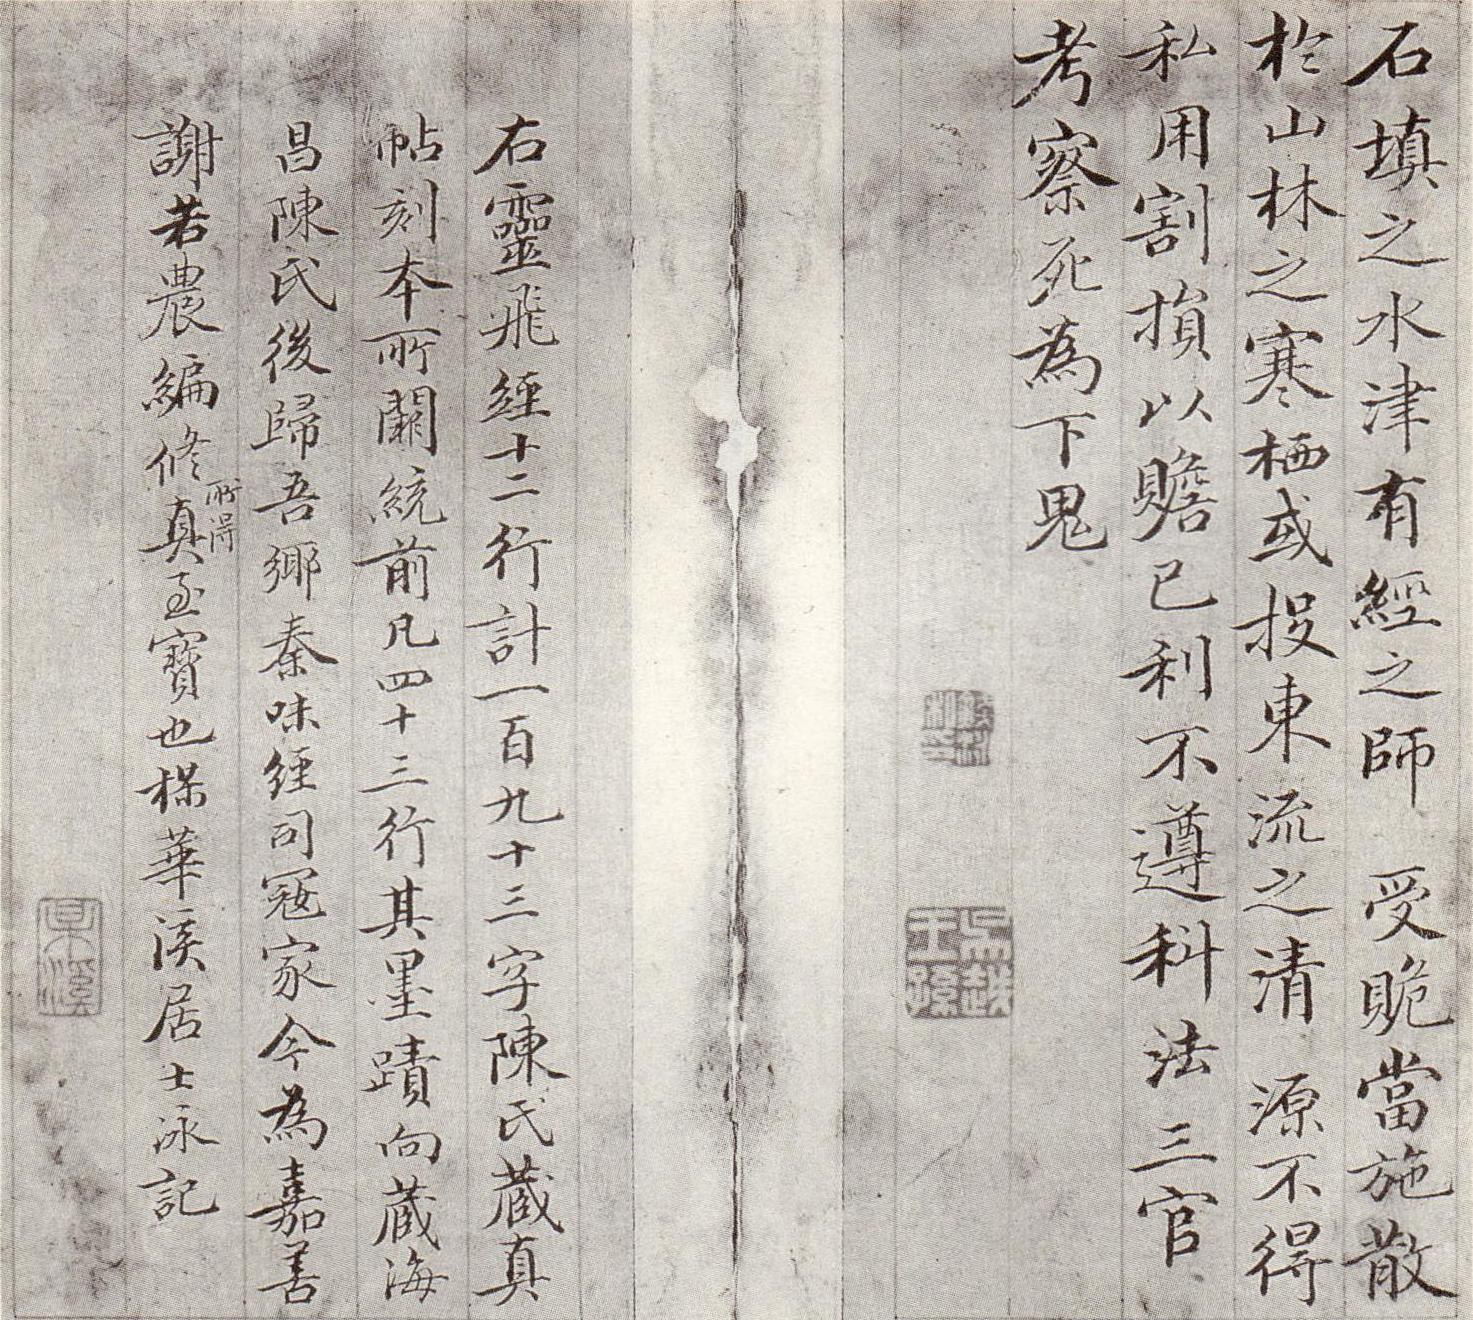 石填之水津有經之師 受賝當施散
於山林之寒栖或投東流之清 源不得
私用割損以贍已利不遵科法三官
考察死為下鬼
吳越
王孫
右靈飛經十二行計一百九十三字陳氏藏真
帖刻本所闕統前凡四十三行其墨蹟向藏海
昌陳氏後歸吾鄉秦味經司寇家今為嘉善
謝若農編修所得真至寶也楳華溪居士泳記